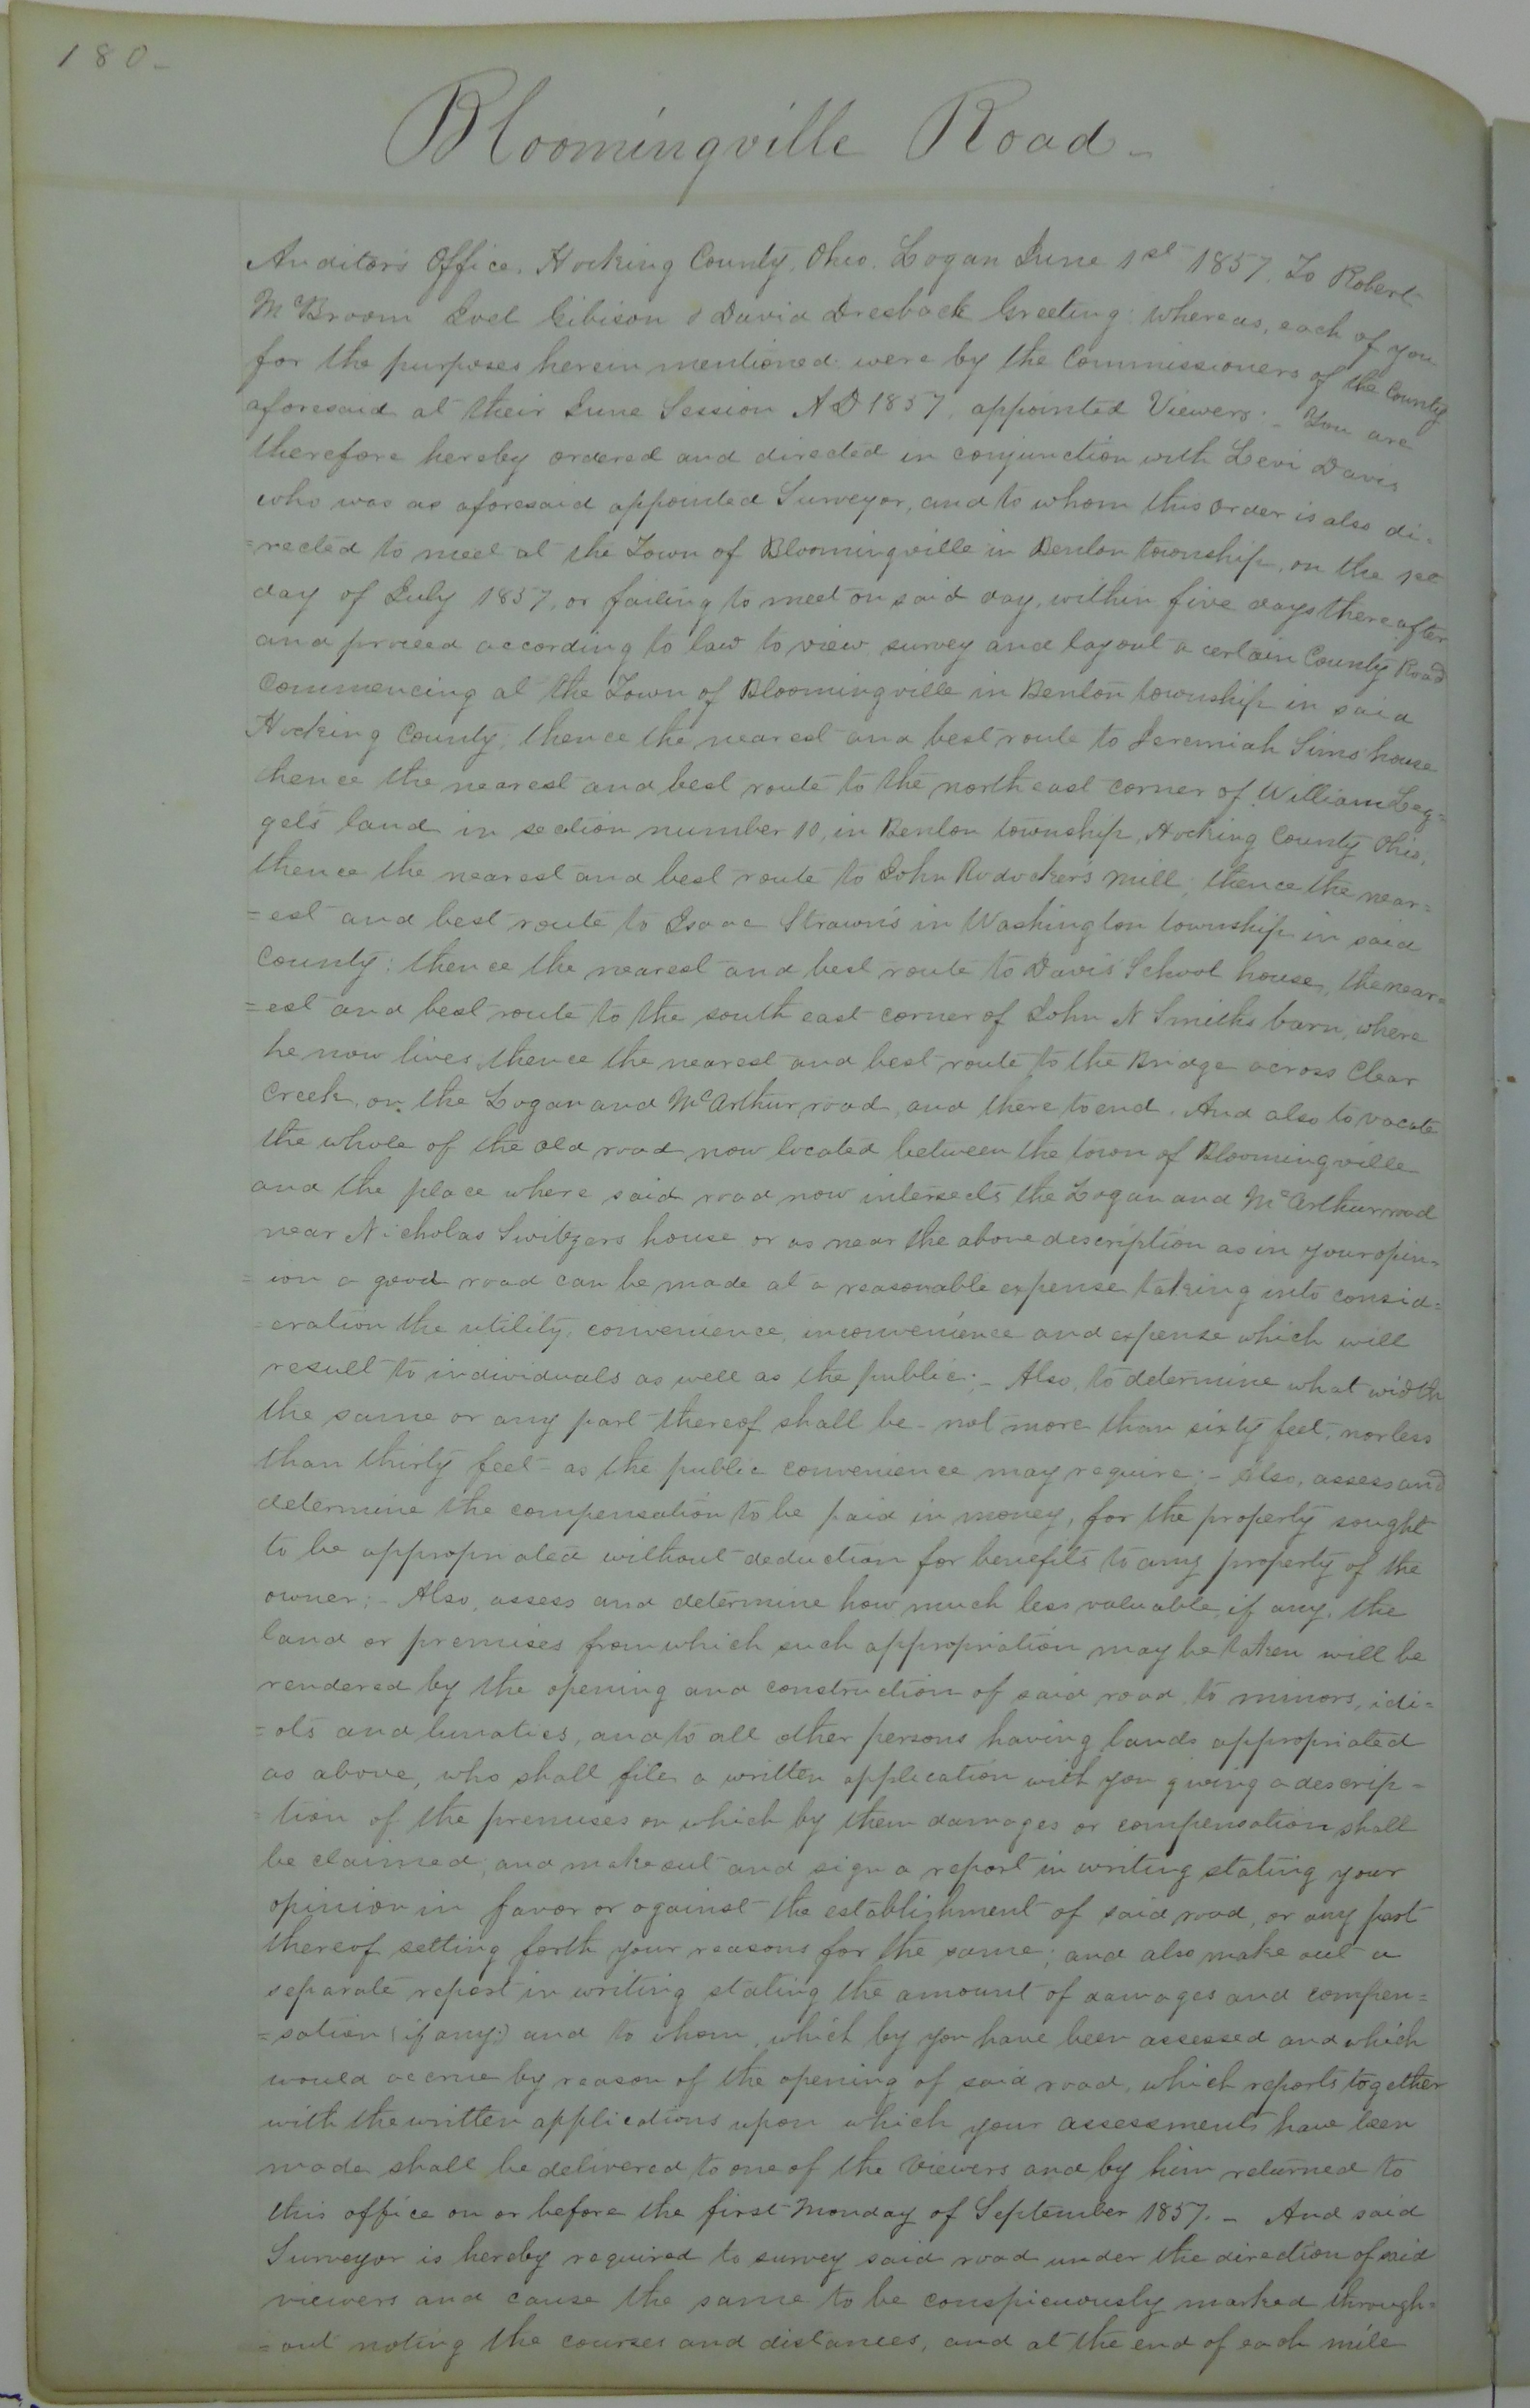 180-
Bloomingville Road-
Auditor's Office, Hocking County, Ohio. Logan June 1st 1857. To Robert
McBroom Joel Gibison & David Dresback Greeting: Whereas, each of you
for the purposes herein mentioned were by the Commissioners of the County
aforesaid at their June Session A D 1857, appointed Viewers:- You are
therefore hereby ordered and directed in conjunction with Levi Davis
who was as aforesaid appointed Surveyor, and to whom this order is also di-
=rected to meet at the Town of Bloomingville in Benton township, on the 1st
day of July 1857, or failing to meet on said day, within five days thereafter
and proceed according to law to view, survey and layout a certain County Road
Commencing at the Town of Bloomingville in Benton township in said
Hocking County; thence the nearest and best route to Jeremiah Sims' house
thence the nearest and best route to the north east corner of William Leg=
gets land in section number 10, in Benton township, Hocking County Ohio,
thence the nearest and best route to John Rudocker's mill; thence the near=
=est and best route to Isaac Strawn's in Washington township in said
County; thence the nearest and best route to Davis' School house, the near=
=est and best route to the south east corner of John N Smith's barn, where
he now lives, thence the nearest and best route to the Bridge across Clear
Creek, on the Logan and McArthur road, and there to end. And also to vacate
the whole of the old road now located between the town of Bloomingville
and the place where said road now intersects the Logan and McArthur road
near Nicholas Switzers house or as near the above description as in your opin=
=ion a good road can be made at a reasonable expense taking into consid=
eration the utility, convenience, inconvenience and expense which will
result to individuals as well as the public;- Also, to determine what width
the same or any part thereof shall be - not more than sixty feet, nor less
than thirty feet - as the public convenience may require;- Also, assess and
determine the compensation to be paid in money, for the property sought
to be appropriated without deduction for benefits to any property of the
owner;- Also, assess and determine how much less valuable, if any, the
land or premises from which such appropriation may be taken will be
rendered by the opening and construction of said road, to minors, idi=
=ots and lunatics, and to all other persons having lands appropriated
as above, who shall file a written application with you giving a descrip=
=tion of the premises on which by them damages or compensation shall
be claimed; and make out and sign a report in writing stating your
opinion in favor or against the establishment of said road, or any part
thereof setting forth your reasons for the same; and also make out a
separate report in writing stating the amount of damages and compen=
=sation (if any) and to whom, which by you have been assessed and which
would accrue by reason of the opening of said road, which reports together
with the written applications upon which your assessments have been
made shall be delivered to one of the Viewers and by him returned to
this office on or before the first Monday of September 1857.- And said
Surveyor is hereby required to survey said road under the direction of said
viewers and cause the same to be conspicuously marked through=
=out noting the courses and distances, and at the end of each mile